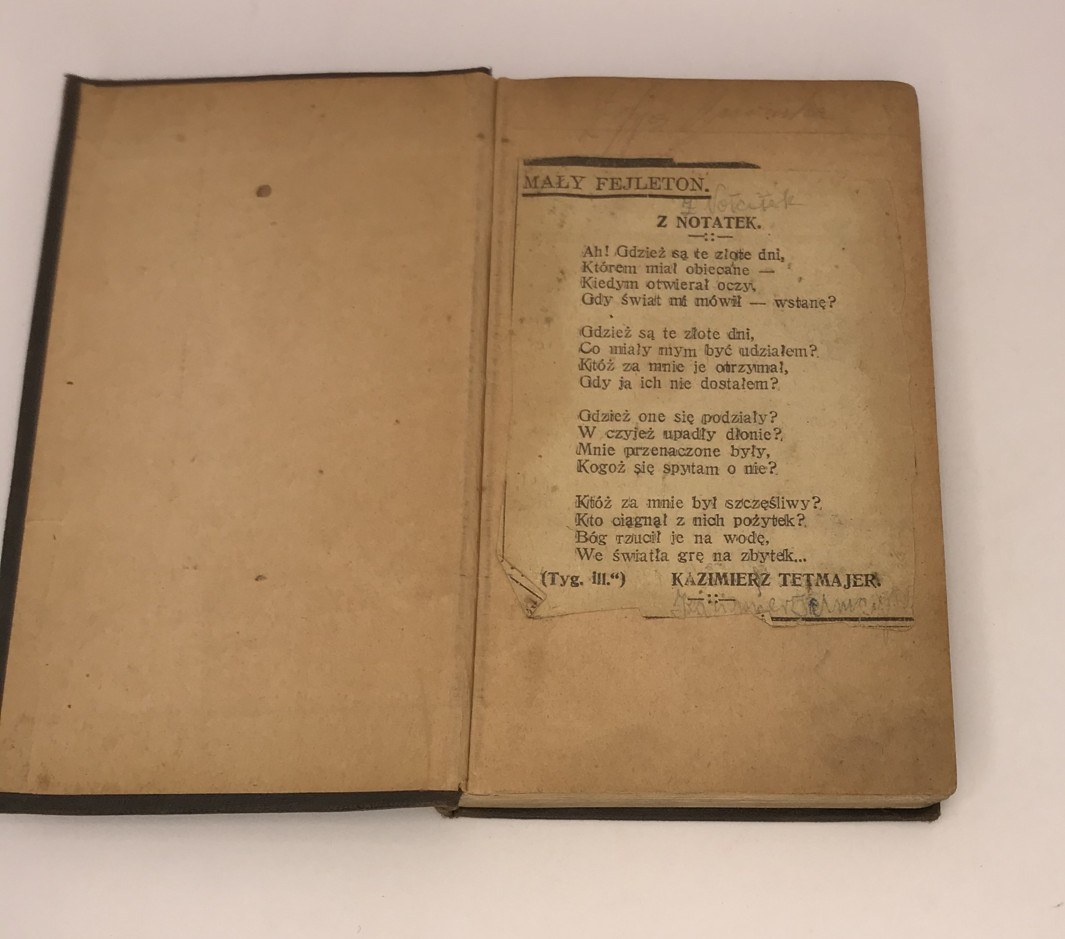 MAŁY FEJLETON.
Z NOTATEK.
Ah! Gdzież są te złote dni,
Którem miał obiecane —
Kiedym otwierał oczy,
Gdy świat mi mówił — wstanę?
Gdzież są te złote dni,
Co miały mym być udziałem?
Któż za mnie je otrzymał,
Gdy ja ich nie dostałem?
Gdzież one się podziały?
W czyjeż upadły dłonie?
Mnie przenaczone były,
Kogoż się spytam o nie?
Któż za mnie był szczęśliwy?
Kto ciągnął z nich pożytek?
Bóg rzucił je na wodę,
We światła grę na zbytek...
(Tyg. Ill.“) KAZIMIERZ TETMAJER.
Kazimierz